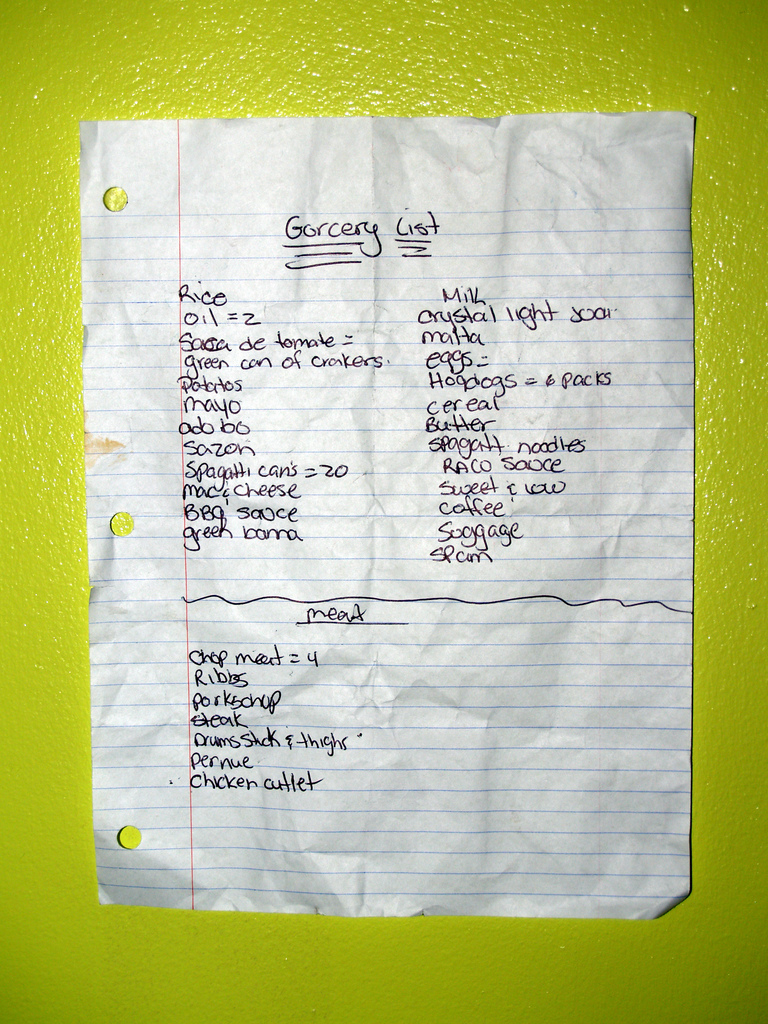 Gorcery List
Rice
oil = 2
Salsa de tomate =
green can of crakers.
Potatos
mayo
adobo
sazon
Spagatti can's = 20
mac & cheese
BBQ sauce
green banna
Milk
crystal light
malta
eggs =
Hogdogs = 6 packs
cereal
Butter
spagatti noodles
RAGU Sauce
Sweet & low
coffee
Soggage
spam
meat
chop meat = 4
Ribbs
porkschop
steak
Drumsstick & thighs
Pernue
Chicken cutlet